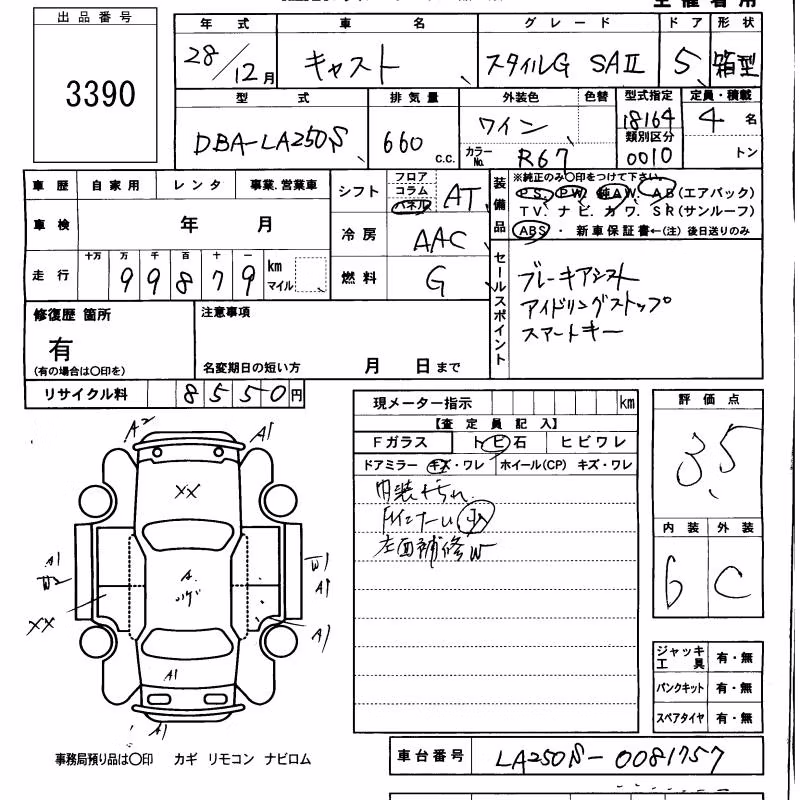 出品番号
3390
年式 車名 グレード ドア 形状
28/12月 キャスト スタイルG SAⅡ 5 箱型
型式 排気量 外装色 色替 型式指定 定員・積載
DBA-LA250S 660 c.c. ワイン 18164 4名
カラーNo. R67 類別区分 0010 トン
車歴 自家用 レンタ 事業.営業車
シフト フロア コラム パネル AT
車検 年 月
冷房 AAC
走行 十万 万 千 百 十 一
99879 km マイル
燃料 G
装備品
※純正のみ○印をつけて下さい。
PS. PW. 純AW. AB(エアバック)
TV. ナビ. カワ. SR(サンルーフ)
ABS ・ 新車保証書←(注) 後日送りのみ
セールスポイント
ブレーキアシスト
アイドリングストップ
スマートキー
修復歴 箇所
有
(有の場合は○印を)
注意事項
名変期日の短い方 月 日まで
リサイクル料 8550円
現メーター指示 km
【査定員記入】
Fガラス トビ石 ヒビワレ
ドアミラー キズ・ワレ ホイール(CP) キズ・ワレ
内装汚れ
左面補修W
評価点
3.5
内装 外装
6 C
ジャッキ工具 有・無
パンクキット 有・無
スペアタイヤ 有・無
A2
A1
XX
A1
W2
XX
A.
W1
A1
A1
A1
A1
事務局預り品は○印 カギ リモコン ナビロム
車台番号 LA250S-0081757